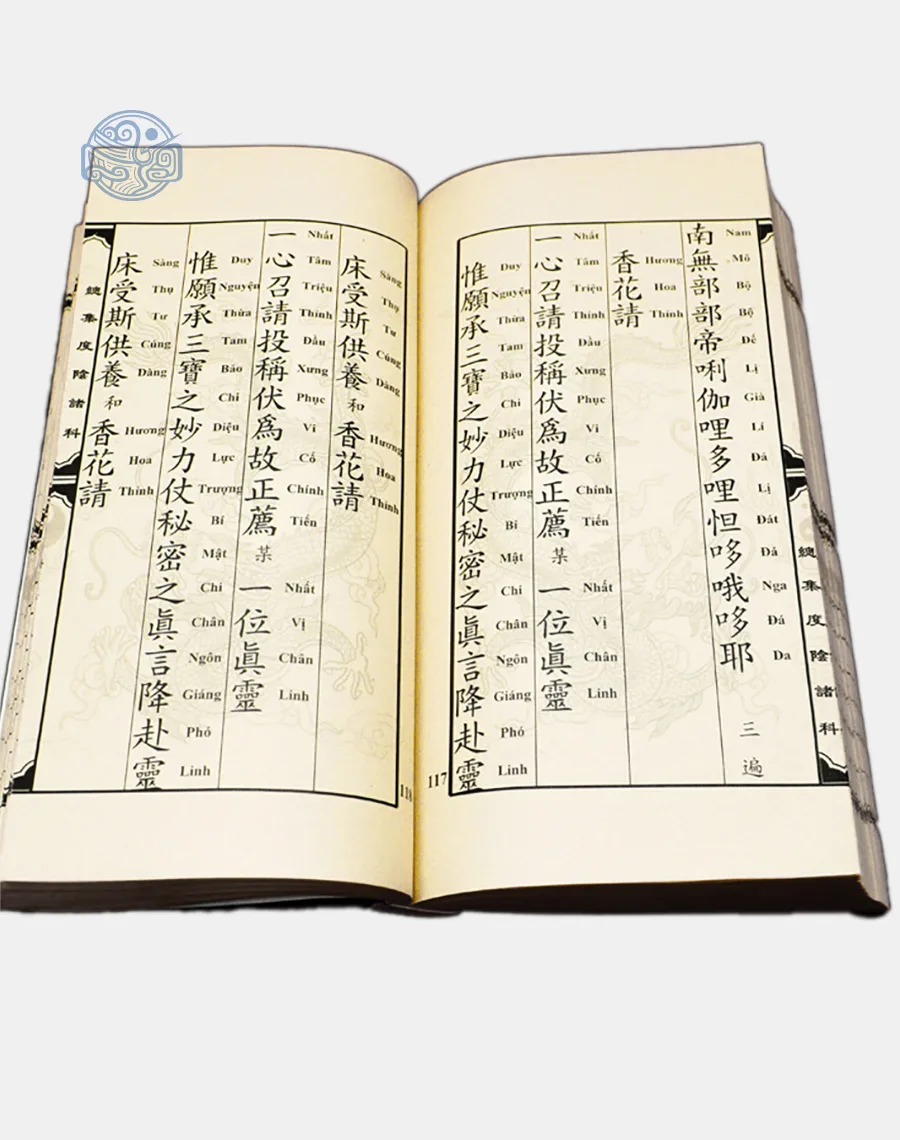 總集度陰諸科
南無部部帝唎伽哩多哩怛哆哦哆耶 三遍
Nam Mô Bộ Bộ Đế Lị Già Lí Đá Lị Đát Đá Nga Đá Da
香花請
Hương Hoa Thỉnh
一心召請投稱伏爲故正薦某一位眞靈
Nhất Tâm Triệu Thỉnh Đầu Xưng Phục Vi Cố Chính Tiến Nhất Vị Chân Linh
惟願承三寶之妙力仗秘密之眞言降赴靈
Duy Nguyện Thừa Tam Bảo Chi Diệu Lực Trượng Bí Mật Chi Chân Ngôn Giáng Phó Linh
117
床受斯供養和香花請
Sàng Thụ Tư Cúng Dàng Hương Hoa Thỉnh
一心召請投稱伏爲故正薦某一位眞靈
Nhất Tâm Triệu Thỉnh Đầu Xưng Phục Vi Cố Chính Tiến Nhất Vị Chân Linh
惟願承三寶之妙力仗秘密之眞言降赴靈
Duy Nguyện Thừa Tam Bảo Chi Diệu Lực Trượng Bí Mật Chi Chân Ngôn Giáng Phó Linh
床受斯供養和香花請
Sàng Thụ Tư Cúng Dàng Hương Hoa Thỉnh
總集度陰諸科
118